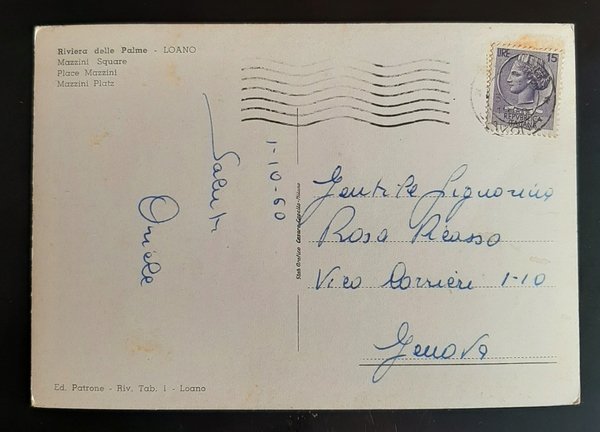 Riviera delle Palme - LOANO
Mazzini Square
Place Mazzini
Mazzini Platz
LIRE 15
REPVBBLICA
ITALIANA
Saluti
Oriele
1-10-60
Gentile Signorina
Rosa Picasso
Vico Corrieri 1-10
Genova
Stab. Grafico Cesare Capello - Milano
Ed. Patrone - Riv. Tab. 1 - Loano